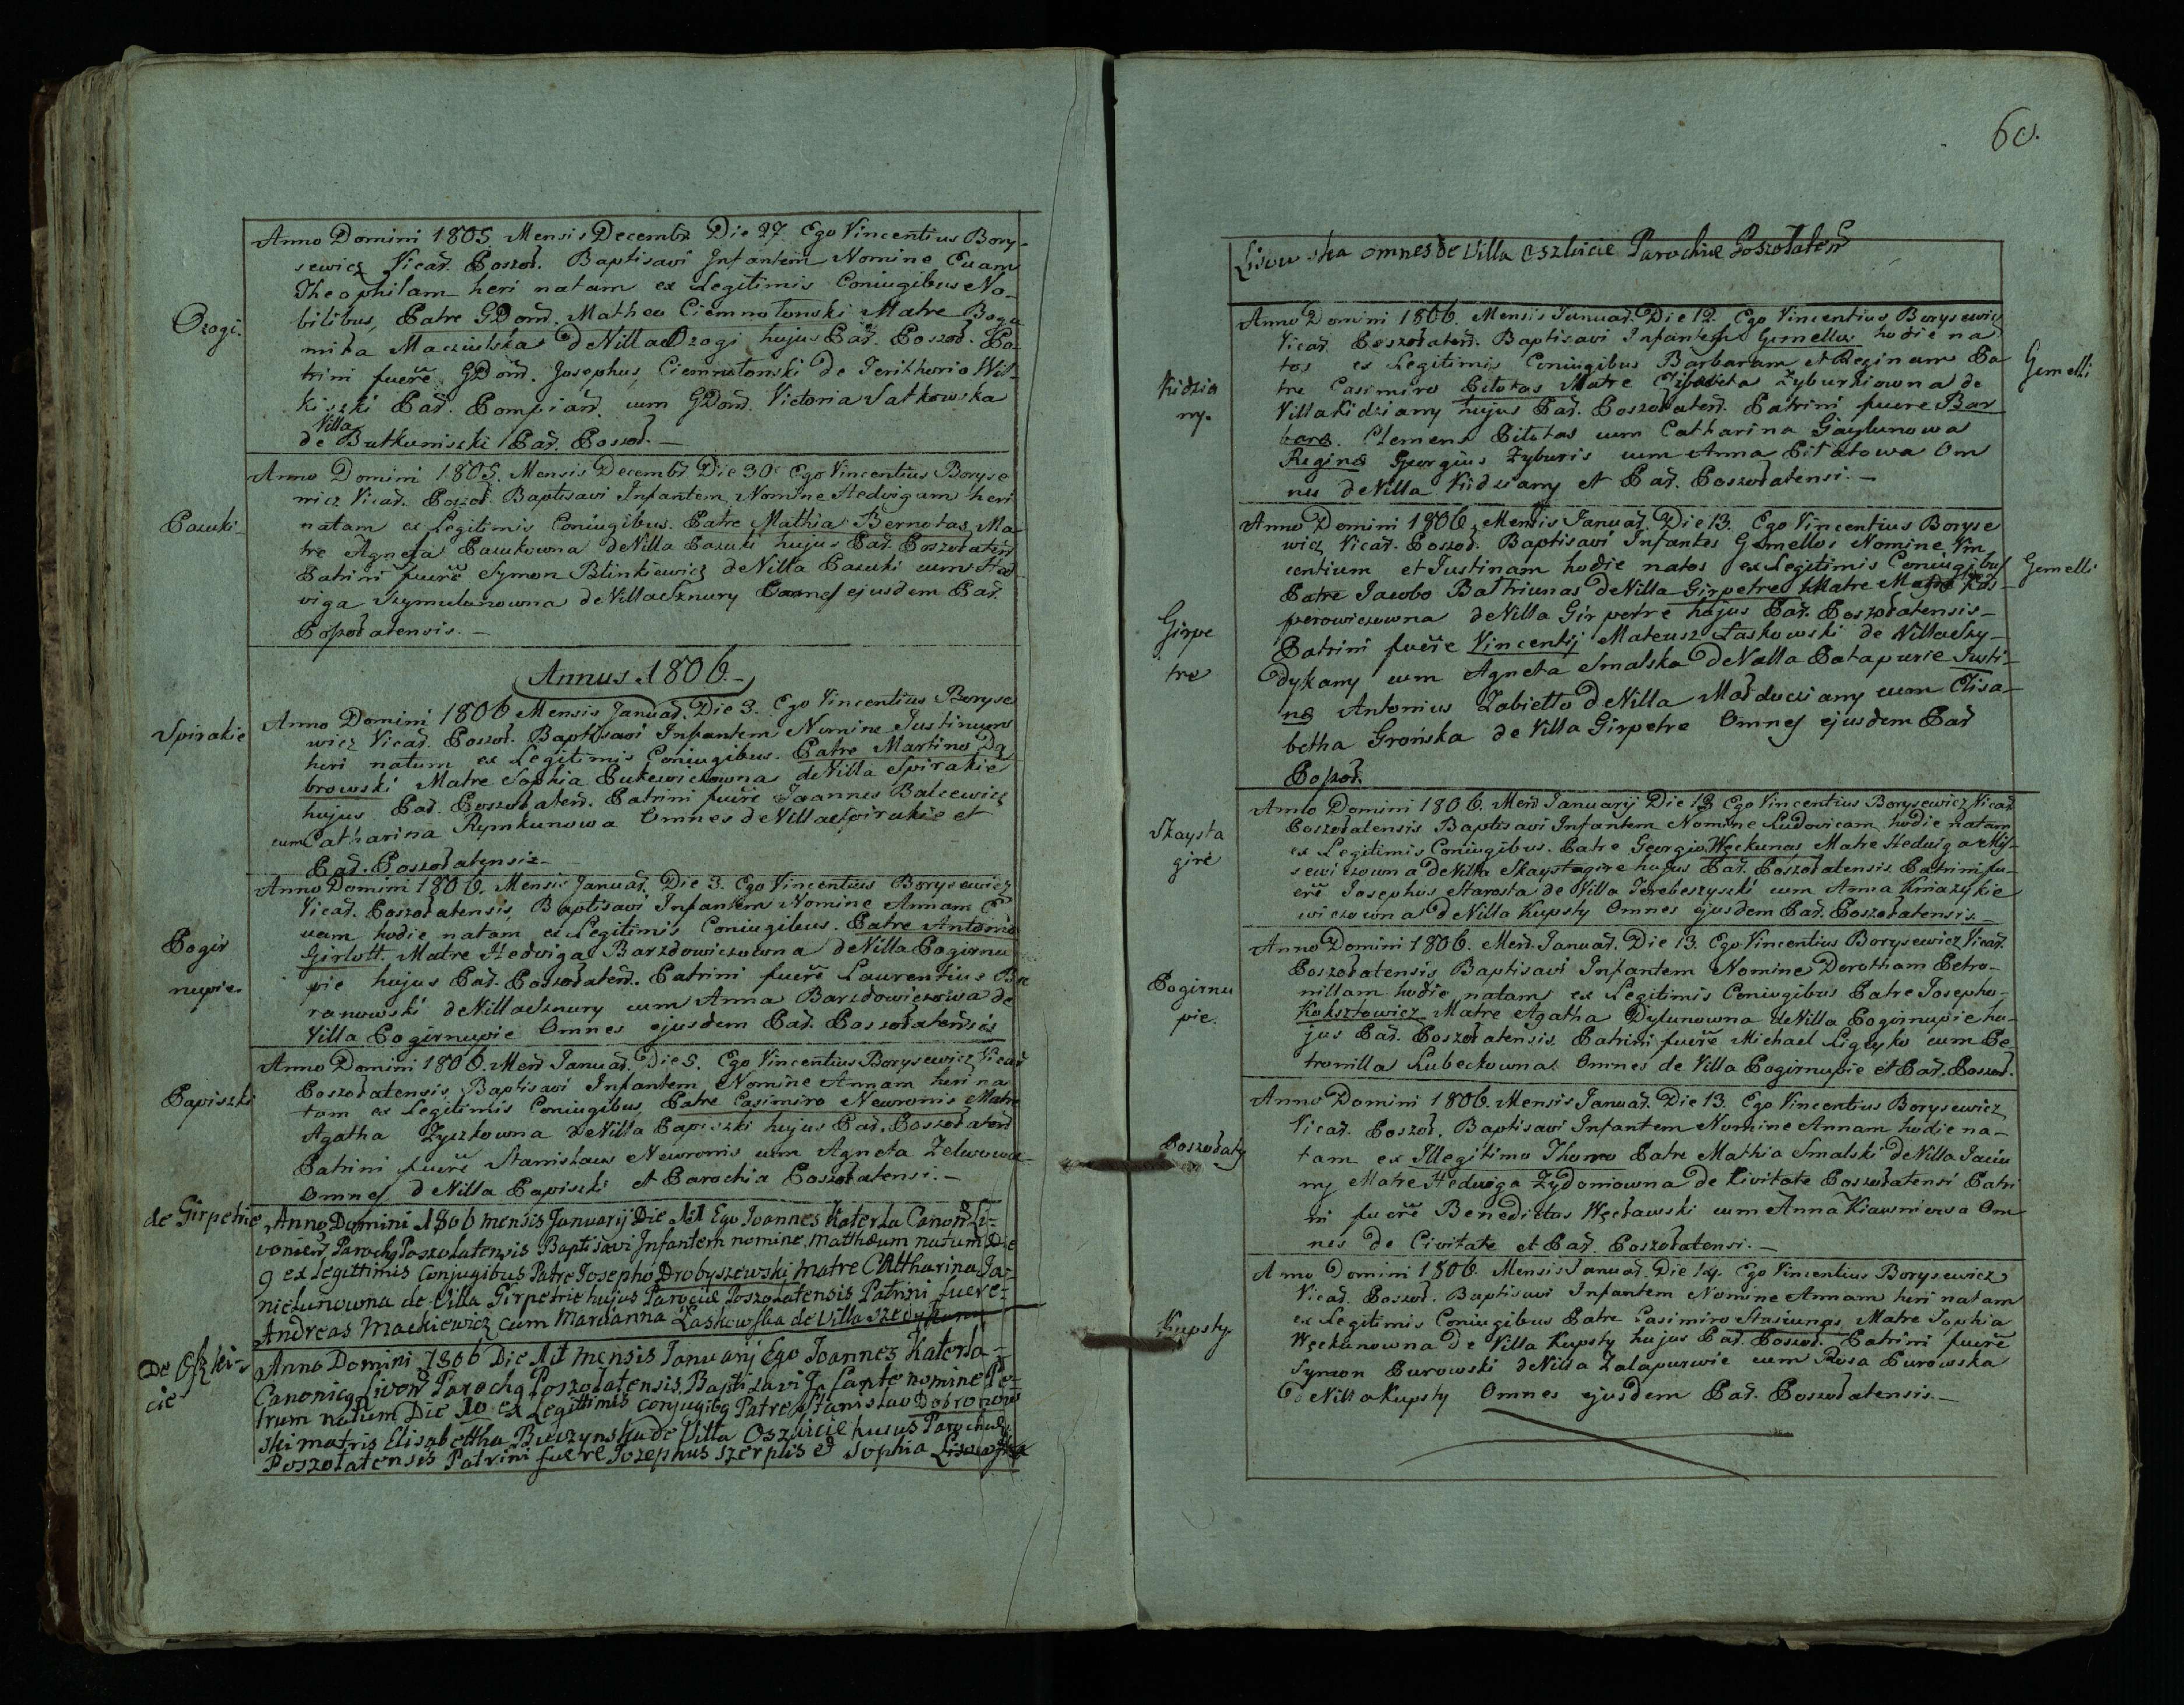 Ozogi.
Anno Domini 1805. Mensis Decembr. Die 27. Ego Vincentius Bory-
sewicz Vicar. Poszoł. Baptisavi Infantem Nomine Evam
Theophilam heri natam ex Legitimis Coniugibus No-
bilibus, Patre GDom. Matheo Ciemnołonski Matre Bogu
miła Maczulska de Villa Ozogi hujus Par. Poszoł. Pa-
trini fuere GDom. Josephus Ciemnołonski de Terithorio Wil-
kiszki Par. Pompian. cum GDom. Victoria Satkowska
Villa
de Butkuniszki Par. Poszoł. —
Pazuki
Anno Domini 1805. Mensis Decembr Die 30 Ego Vincentius Boryse
wicz Vicar. Poszoł. Baptisavi Infantem Nomine Hedvigam heri
natam ex Legitimis Coniugibus. Patre Mathia Bernotas Ma-
tre Agneta Pazukowna de Villa Pazuki hujus Par. Poszołaten
Patrini fuere Symon Blinkiewicz de Villa Pazuki cum Hed
viga Szymulunowna de Villa Sznury Omnes ejusdem Par.
Poszołatensis. —
Annus 1806. -
Spirakie
Anno Domini 1806 Mensis Januar. Die 3. Ego Vincentius Boryse
wicz Vicar. Poszoł. Baptisavi Infantem Nomine Justinum
heri natum ex Legitimis Coniugibus. Patre Martino Dą
browski Matre Sophia Pukewiczowna de Villa Spirakie
hujus Par. Poszołaten. Patrini fuere Joannes Balcewicz
cum Catharina Rymkunowa Omnes de Villa Spirakie et
Par. Poszołatensis —
Pogir
nupie.
Anno Domini 1806. Mensis Januar. Die 3. Ego Vincentius Borysewicz
Vicar. Poszołatensis, Baptisavi Infantem Nomine Annam E
vam hodie natam ex Legitimis Coniugibus. Patre Antonio
Girtott. Matre Hedviga Barzdowiczowna de Villa Pogirnu
pie hujus Par. Poszołaten. Patrini fuere Laurentius Ba
ranowski de Villa Sznury cum Anna Barzdowiczowa de
Villa Pogirnupie Omnes ejusdem Par. Poszołatensis
Papiszki
Anno Domini 1806. Men Januar. Die 5. Ego Vincentius Borysewicz Vicar
Poszołatensis, Baptisavi Infantem Nomine Annam heri na
tam ex Legitimis Coniugibus, Patre Casimiro Newronis Matre
Agatha Zyczkowna de Villa Papiszki hujus Par. Poszołaten
Patrini fuere Stanislaus Newronis cum Agneta Zelwowa
Omnes de Villa Papiszki et Parochia Poszołatensi. —
de Girpetrie
Anno Domini 1806 mensis Januarij Die 11 Ego Joannes Katerla Canon Li-
vonien Paroch Poszolatensis Baptisavi Infantem nomine Matthæum natum Die
9 ex Legittimis Conjugibus Patre Josepho Drobyszewski matre Catharina Ja-
nielunowna de Villa Girpetrie hujus Parociæ Poszolatensis Patrini fuere-
Andreas Mackiewicz cum Marianna Laskowska de Villa
De Oszki-
cie
Anno Domini 1806 Die 11 mensis Januarij Ego Joannes Katerla-
Canonicq Livon Parochq Poszolatensis Baptisavi Infante nomine Pe-
trum natum Die 10 ex Legittimis conjugibq Patre Stanislao Dobrowol
ski matris Elisabettha Buczynska de Villa Oszkicie hujus Parochiæ
Poszolatensis Patrini fuere Josephus Szerplis et Sophia Lisowska
60.
Lisow ska omnes de Villa Oszkicie Parochiæ Poszołaten
Kidzia
ny.
Gemelli
Anno Domini 1806. Mensis Januar. Die 12. Ego Vincentius Borysewicz
Vicar. Poszołaten. Baptisavi Infantes Gemellos hodie na
tos ex Legitimis Coniugibus Barbaram et Reginam Pa
tre Casimiro Pitotas Matre Elisabeta Zyburkiowna de
Villa Kidziany hujus Par. Poszołaten. Patrini fuere Bar
baræ. Clemens Pitotas cum Catharina Gaylunowa
Reginæ Georgius Zyburis cum Anna Pitatowa Om
nes de Villa Kidziany et Par. Poszołatensi. —
Girpe
tre
Gemelli
Anno Domini 1806. Mensis Januar. Die 13. Ego Vincentius Boryse
wicz Vicar. Poszoł. Baptisavi Infantes Gemellos Nomine Vin
centium et Justinam hodie natos ex Legitimis Coniugibus
Patre Jacobo Baltriunas de Villa Girpetre Matre Kas-
perowiczowna de Villa Girpetre hujus Par. Poszołatensis —
Patrini fuere Vincentij Mateusz Laskowski de Villa Szy-
dykany cum Agneta Smalska de Villa Patapurie Justi-
næ Antonius Zabietto de Villa Marduciany cum Elisa-
betha Grońska de Villa Girpetre Omnes ejusdem Par
Poszoł.
Skaysta
girie
Anno Domini 1806. Men Januarij Die 13 Ego Vincentius Borysewicz Vicar
Poszołatensis Baptisavi Infantem Nomine Ludovicam hodie natam
ex Legitimis Coniugibus. Patre Georgio Węckunas Matre Hedviga Mis-
sewiczowna de Villa Skaystagire hujus Par. Poszołatensis Patrini fu-
ere Josephus Starosta de Villa Terebeszyszki cum Anna Kniazykie
wiczowna de Villa Kupsty Omnes ejusdem Par. Poszołatensis —
Pogirnu
pie.
Anno Domini 1806. Men. Januar. Die 13. Ego Vincentius Borysewicz Vicar.
Poszołatensis, Baptisavi Infantem Nomine Dorotham Petro-
nillam hodie natam ex Legitimis Coniugibus Patre Josepho
Koksztowicz Matre Agatha Dylunowna de Villa Pogirnupie hu-
jus Par. Poszołatensis Patrini fuere Michael Ligeyko cum Pe-
tronilla Lubeckowna Omnes de Villa Pogirnupie et Par. Poszoł.
Poszołaty
Anno Domini 1806. Mensis Januar. Die 13 Ego Vincentius Borysewicz
Vicar. Poszoł. Baptisavi Infantem Nomine Annam hodie na-
tam ex Illegitimo Thoro Patre Mathia Smalski de Villa Jaciu
ny Matre Hedviga Zydoniowna de Civitate Poszołatensi Patri
ni fuere Benedictus Węcławski cum Anna Kiawniowa Om
nes de Civitate et Par. Poszołatensi. —
Kupsty.
Anno Domini 1806. Mensis Januar. Die 14. Ego Vincentius Borysewicz
Vicar. Poszoł. Baptisavi Infantem Nomine Annam heri natam
ex Legitimis Coniugibus Patre Casimiro Stasiunas Matre Sophia
Węckunowna de Villa Kupsty hujus Par. Poszoł. Patrini fuere
Symon Burowski de Villa Zalapurwie cum Rosa Burowska
de Villa Kupsty Omnes ejusdem Par. Poszołatensis —